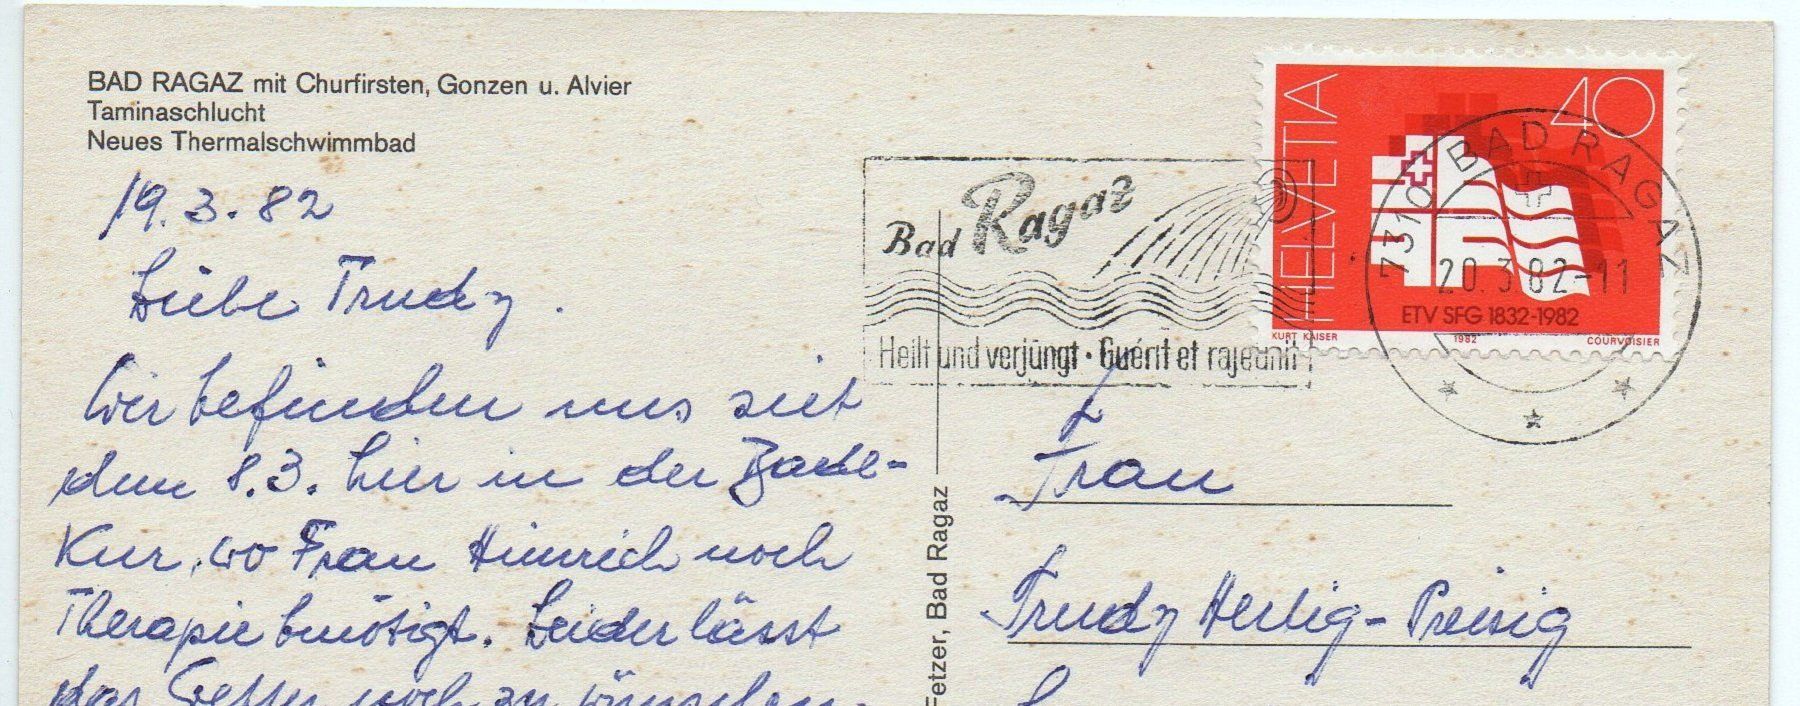 BAD RAGAZ mit Churfirsten, Gonzen u. Alvier
Taminaschlucht
Neues Thermalschwimmbad
19.3.82
Liebe Trudy.
Wir befinden uns seit
dem 8.3. hier in der Bade-
Kur, wo Frau Hinrich noch
Therapie benötigt. Leider lässt
das Wetter noch zu wünschen
Fetzer, Bad Ragaz
Bad Ragaz
Heilt und verjüngt · Guérit et rajeunit
HELVETIA
40
ETV SFG 1832-1982
KURT KAISER 1982 COURVOISIER
7310 BAD RAGAZ
20.3.82-11
Frau
Trudy Hertig-Preisig